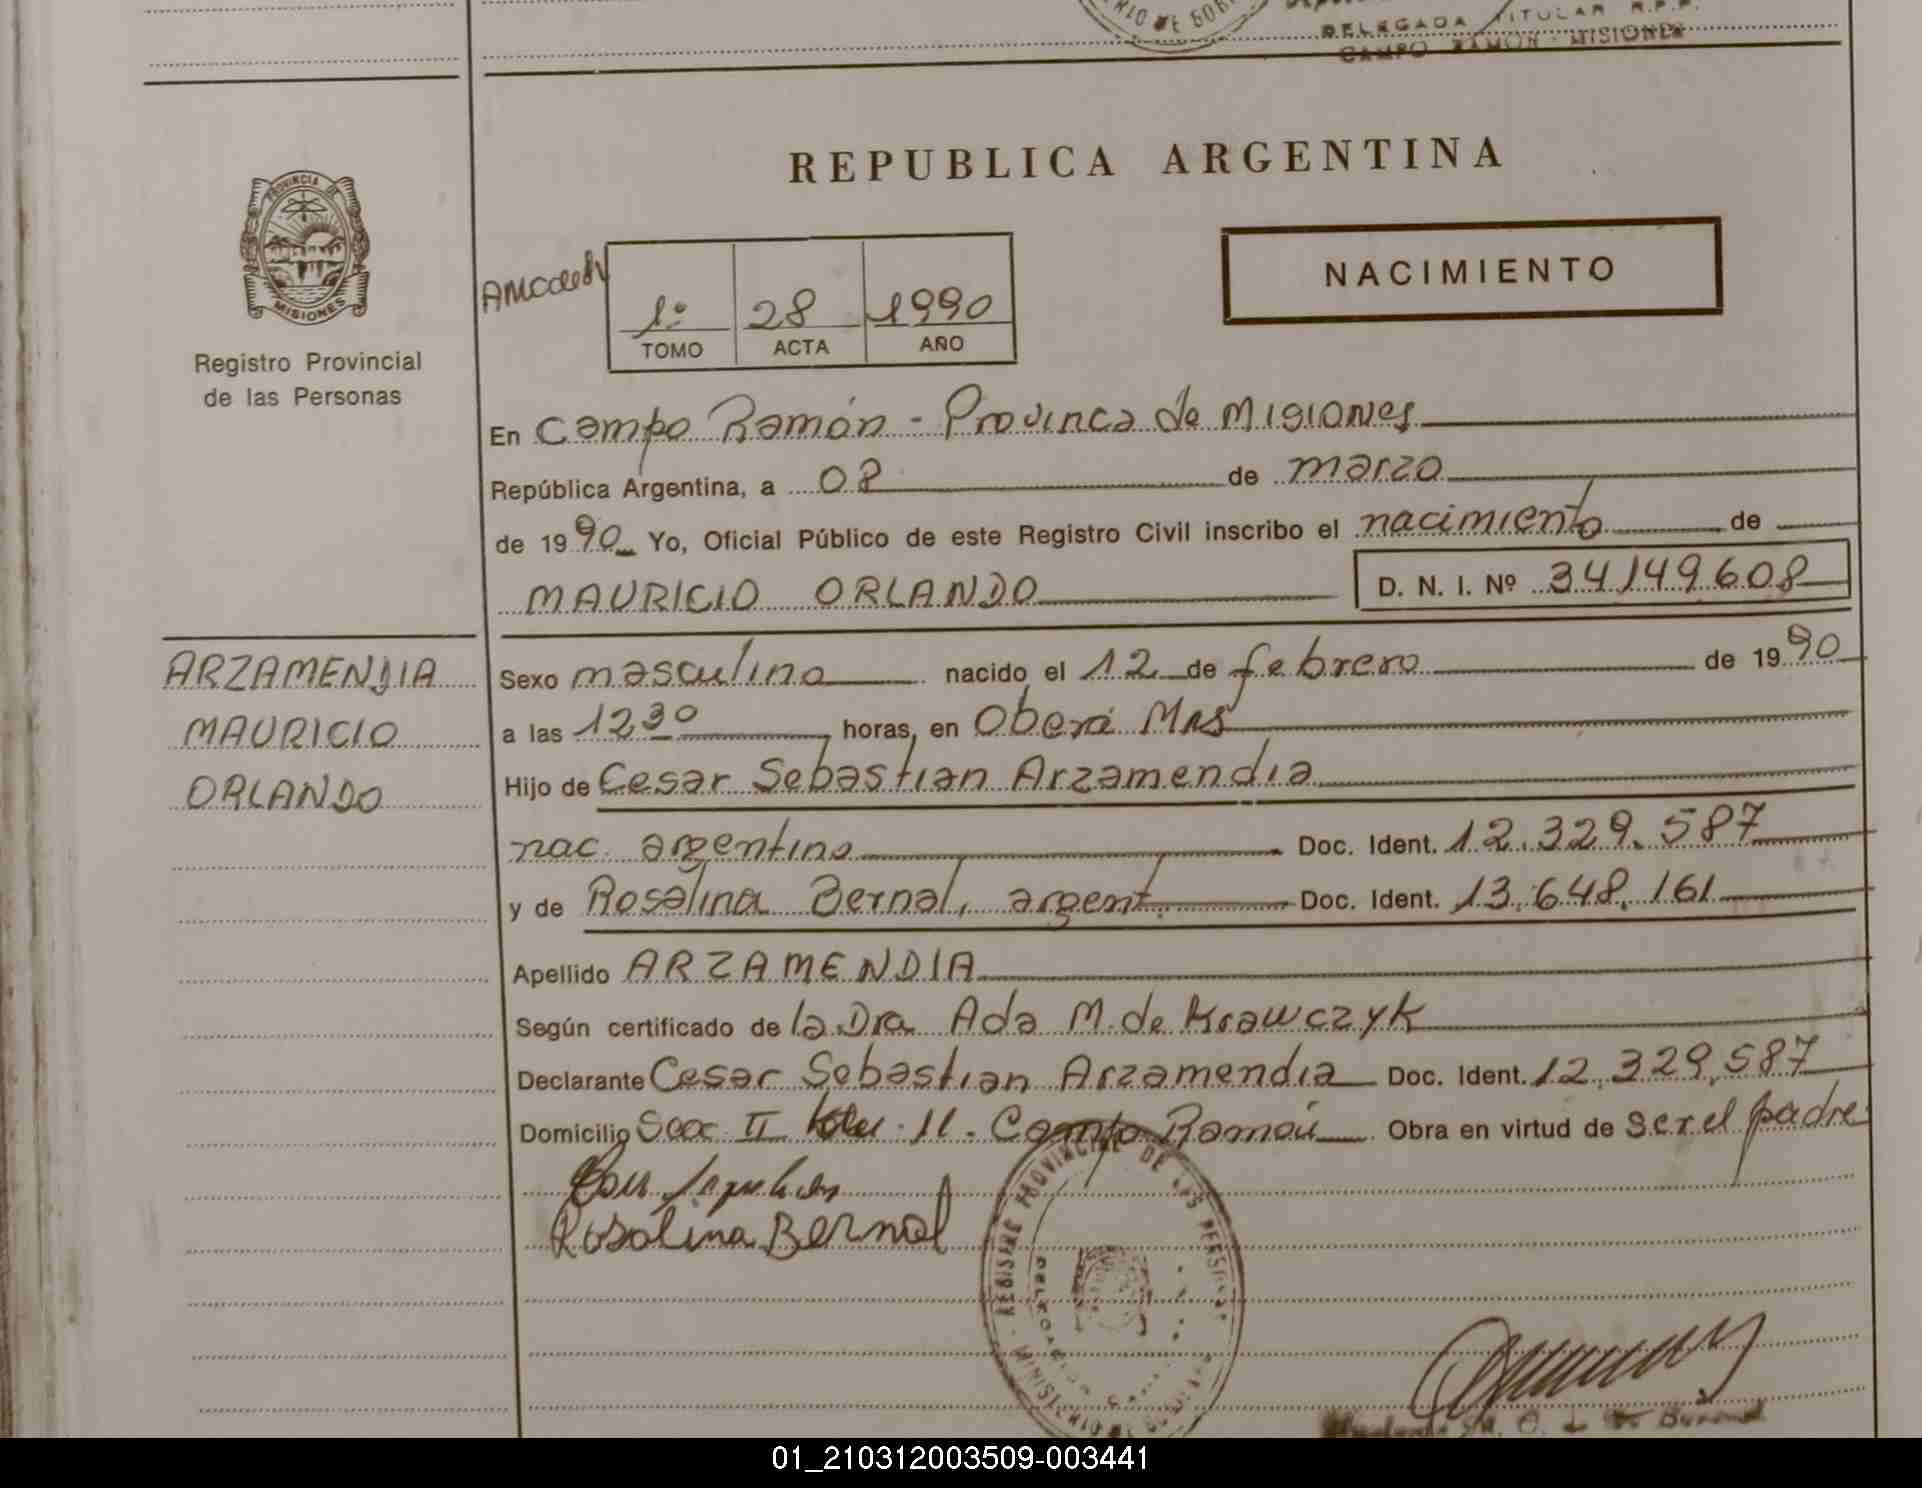 DELEGADA TITULAR R.P.P.
CAMPO RAMON - MISIONES
REPUBLICA ARGENTINA
PROVINCIA DE
MISIONES
Registro Provincial
de las Personas
1º 28 1990
TOMO ACTA AÑO
NACIMIENTO
En Campo Ramón - Provinca de Misiones
República Argentina, a 08 de marzo
de 1990 Yo, Oficial Público de este Registro Civil inscribo el nacimiento de
MAURICIO ORLANDO D. N. I. Nº 34149608
ARZAMENDIA
MAURICIO
ORLANDO
Sexo masculino nacido el 12 de febrero de 1990
a las 12 30 horas, en Oberá Mns
Hijo de Cesar Sebastian Arzamendia
nac. argentino Doc. Ident. 12.329.587
y de Rosalina Bernal, argent. Doc. Ident. 13.648.161
Apellido ARZAMENDIA
Según certificado de la Dra Ada M. de Krawczyk
Declarante Cesar Sebastian Arzamendia Doc. Ident. 12.329.587
Domicilio Secc II 11 - Campo Ramón Obra en virtud de Ser el padre
Rosalina Bernal
REGISTRO PROVINCIAL DE LAS PERSONAS
01_210312003509-003441